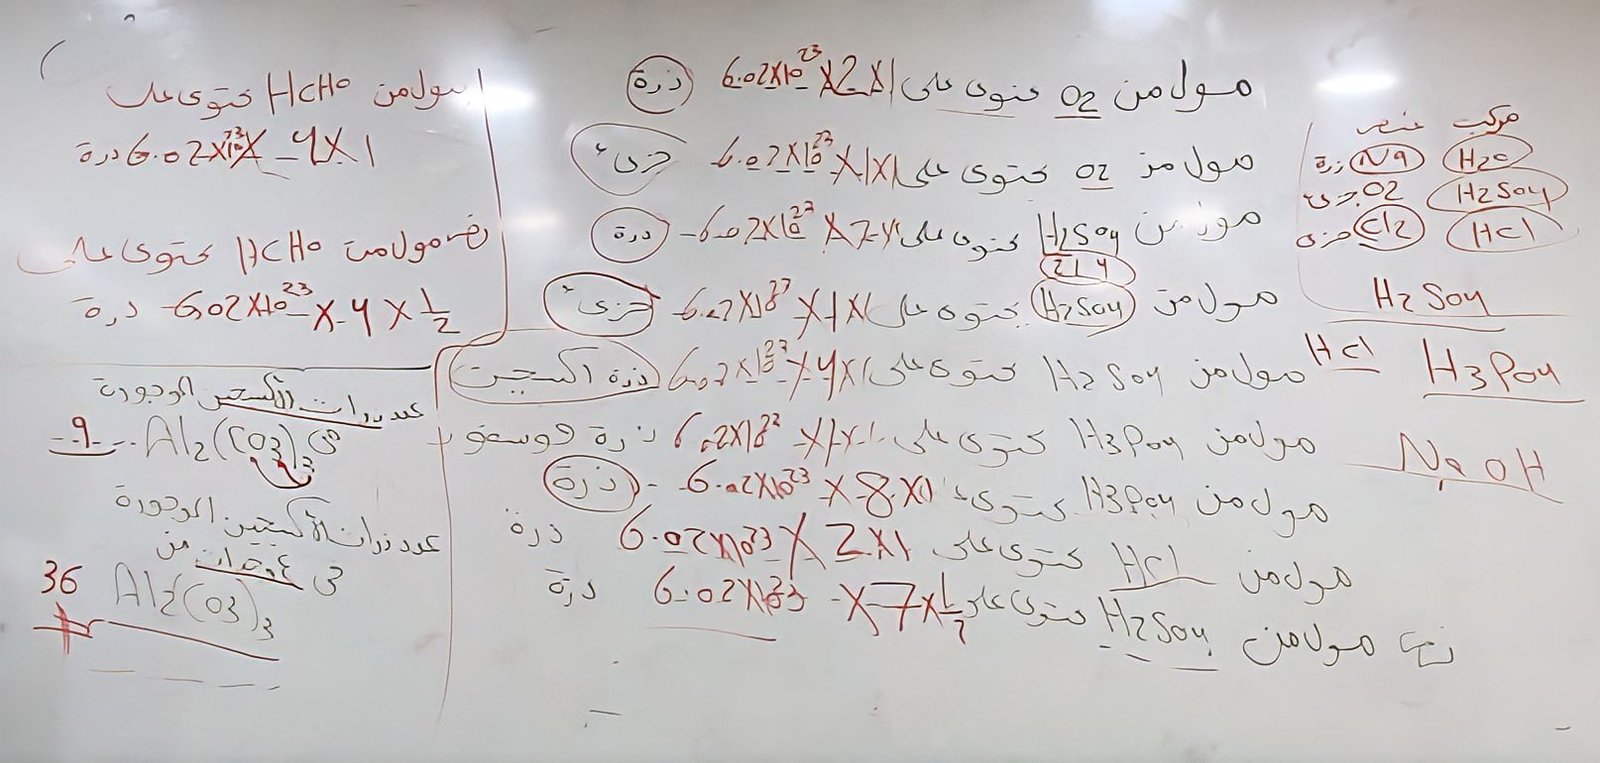 مركب عنصر
H2O Na ذرة
H2SO4 O2 جزئ
HCl Cl2 جزئ
H2SO4
HCl H3PO4
NaOH
مول من O2 تحتوى على 1×2×6.02×10²³ ذرة
مول من O2 تحتوى على 1×1×6.02×10²³ جزئ
مول من H2SO4 تحتوى على 1×7×6.02×10²³ ذرة
2 1 4
مول من H2SO4 تحتوى على 1×1×6.02×10²³ جزئ
مول من H2SO4 تحتوى على 1×4×6.02×10²³ ذرة اكسجين
مول من H3PO4 تحتوى على 1×1×6.02×10²³ ذرة فوسفور
مول من H3PO4 تحتوى على 1×8×6.02×10²³ ذرة
مول من HCl تحتوى على 1×2×6.02×10²³ ذرة
نصف مول من H2SO4 تحتوى على 1/2×7×6.02×10²³ ذرة
مول من HCHO تحتوى على
1×4×6.02×10²³ ذرة
نصف مول من HCHO تحتوى على
1/2×4×6.02×10²³ ذرة
عدد ذرات الأكسجين الموجودة
فى Al2(CO3)3 9
عدد ذرات الأكسجين الموجودة
فى من
Al2(CO3)3 36